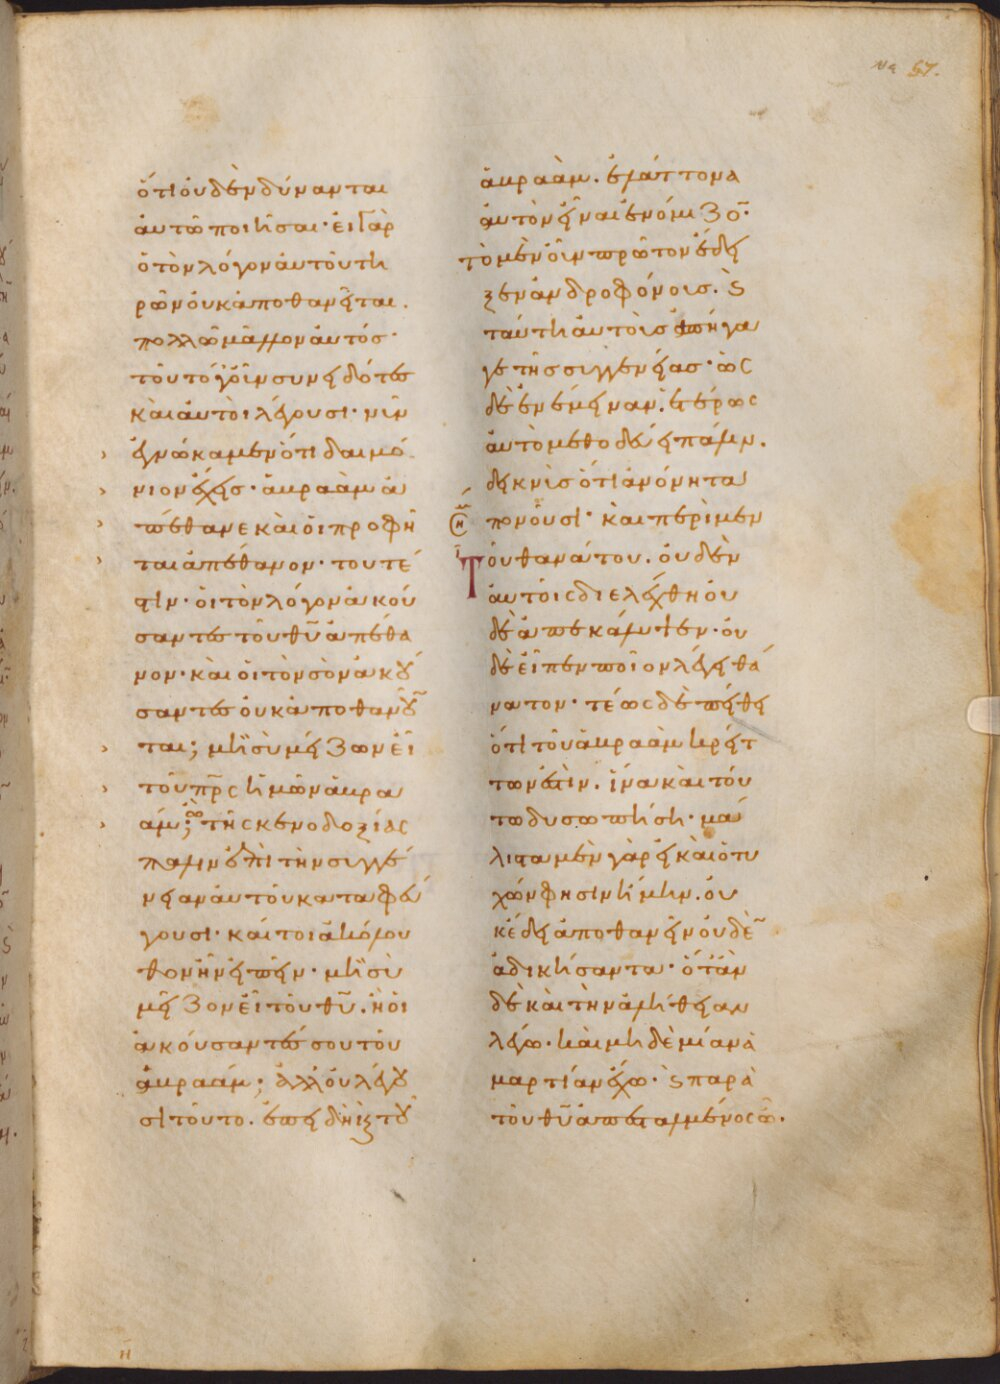 να 57.
ὅτι οὐδὲν δύνανται
αὐτῶ ποιῆσαι· εἰ γὰρ
ὁ τὸν λόγον αὐτοῦ τη
ρῶν οὐκ ἀποθανεῖται.
πολλῶ μᾶλλον αὐτός·
τοῦτο γοῦν συνειδότες
καὶ αὐτοὶ λέγουσι· νῦν
ἐγνώκαμεν ὅτι δαιμό
νιον ἔχεις· ἀβραὰμ ἀ
πέθανε καὶ οἱ προφῆ
ται ἀπέθανον· τουτέ
στιν· οἱ τὸν λόγον ἀκού
σαντες τοῦ θῦ ἀπέθα
νον· καὶ οἱ τὸν σὸν ἀκού
σαντες οὐκ ἀποθανοῦν
ται; μὴ σὺ μείζων εἶ
τοῦ πρς ἡμῶν ἀβρα
άμ; ὢ τῆς κενοδοξίας
πάλιν ἐπὶ τὴν συγγέ
νειαν αὐτοῦ καταφεύ
γουσι· καίτοι ἀκόλου
θον ἦν εἰπεῖν· μὴ σὺ
μείζον εἶ τοῦ θῦ. ἢ οἱ
ἀκούσαντές σου τοῦ
ἀβραάμ; ἀλλ' οὐ λέγου
σι τοῦτο. ἐπειδὴ ἐκ τοῦ
ἀβραὰμ. ἐλάττονα
αὐτὸν εἶναι ἐνόμιζον·
τὸ μὲν οὖν πρῶτον ἔδει
ξεν ἀνδροφόνοις. καὶ
ταύτη αὐτοὺς ἀπήγα
γε τῆς συγγενείας· ὡς
δὲ ἐνέμειναν. ἑτέρως
αὐτὸ μεθοδεύει πάλιν.
δεικνὺς ὅτι ἀνόνητα
πονοῦσι· καὶ περὶ μὲν
τοῦ θανάτου. οὐδὲν
αὐτοῖς διελέχθη οὐ
δὲ ἀπεκάλυψεν· οὐ
δὲ εἶπεν ποῖον λέγει θά
νατον· τέως δὲ πείθει
ὅτι τοῦ ἀβραὰμ κρείτ
των ἐστὶν. ἵνα καὶ τού
τω δυσωπήση· μά
λιστα μὲν γὰρ εἰ καὶ ὁ τυ
χών φησιν ἤμην. οὐ
κ ἔδει ἀποθανεῖν οὐδὲν
ἀδικήσαντα· ὅταν
δὲ καὶ τὴν ἀλήθειαν
λέγω. καὶ μηδεμίαν ἁ
μαρτίαν ἔχω· καὶ παρὰ
τοῦ θῦ ἀπεσταλμένος ὦ.